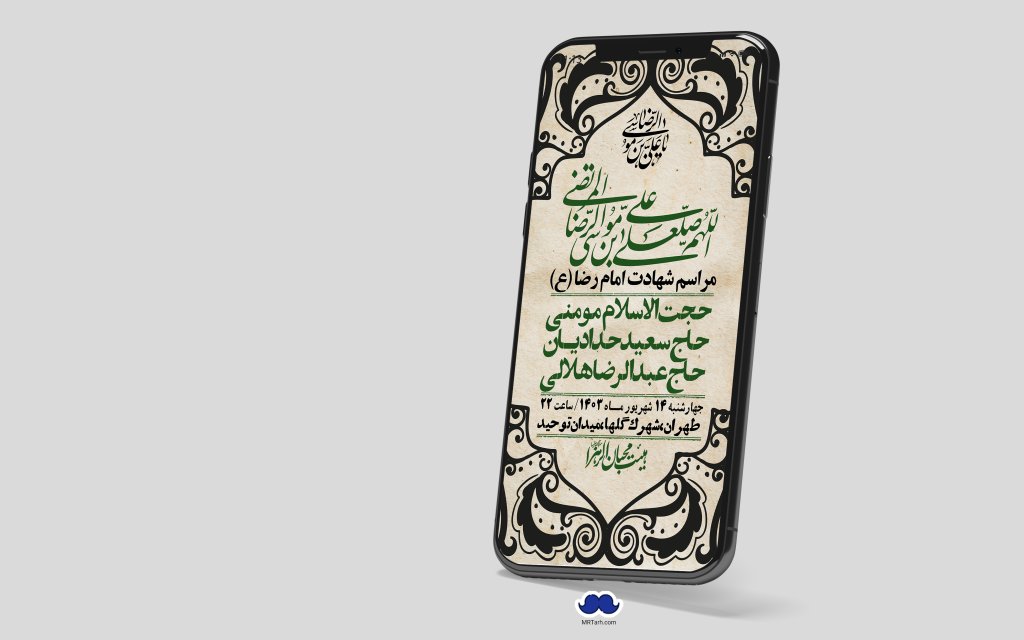 یا علی بن موسی الرضا
اللهم صل علی علی بن موسی الرضا المرتضی
مراسم شهادت امام رضا (ع)
حجت‌الاسلام مومنی
حاج سعید حدادیان
حاج عبدالرضا هلالی
چهارشنبه ۱۴ شهریور ماه ۱۴۰۳ / ساعت ۲۲
طهران، شهرک گلها، میدان توحید
هیئت محبان الزهرا
MRTarh.com